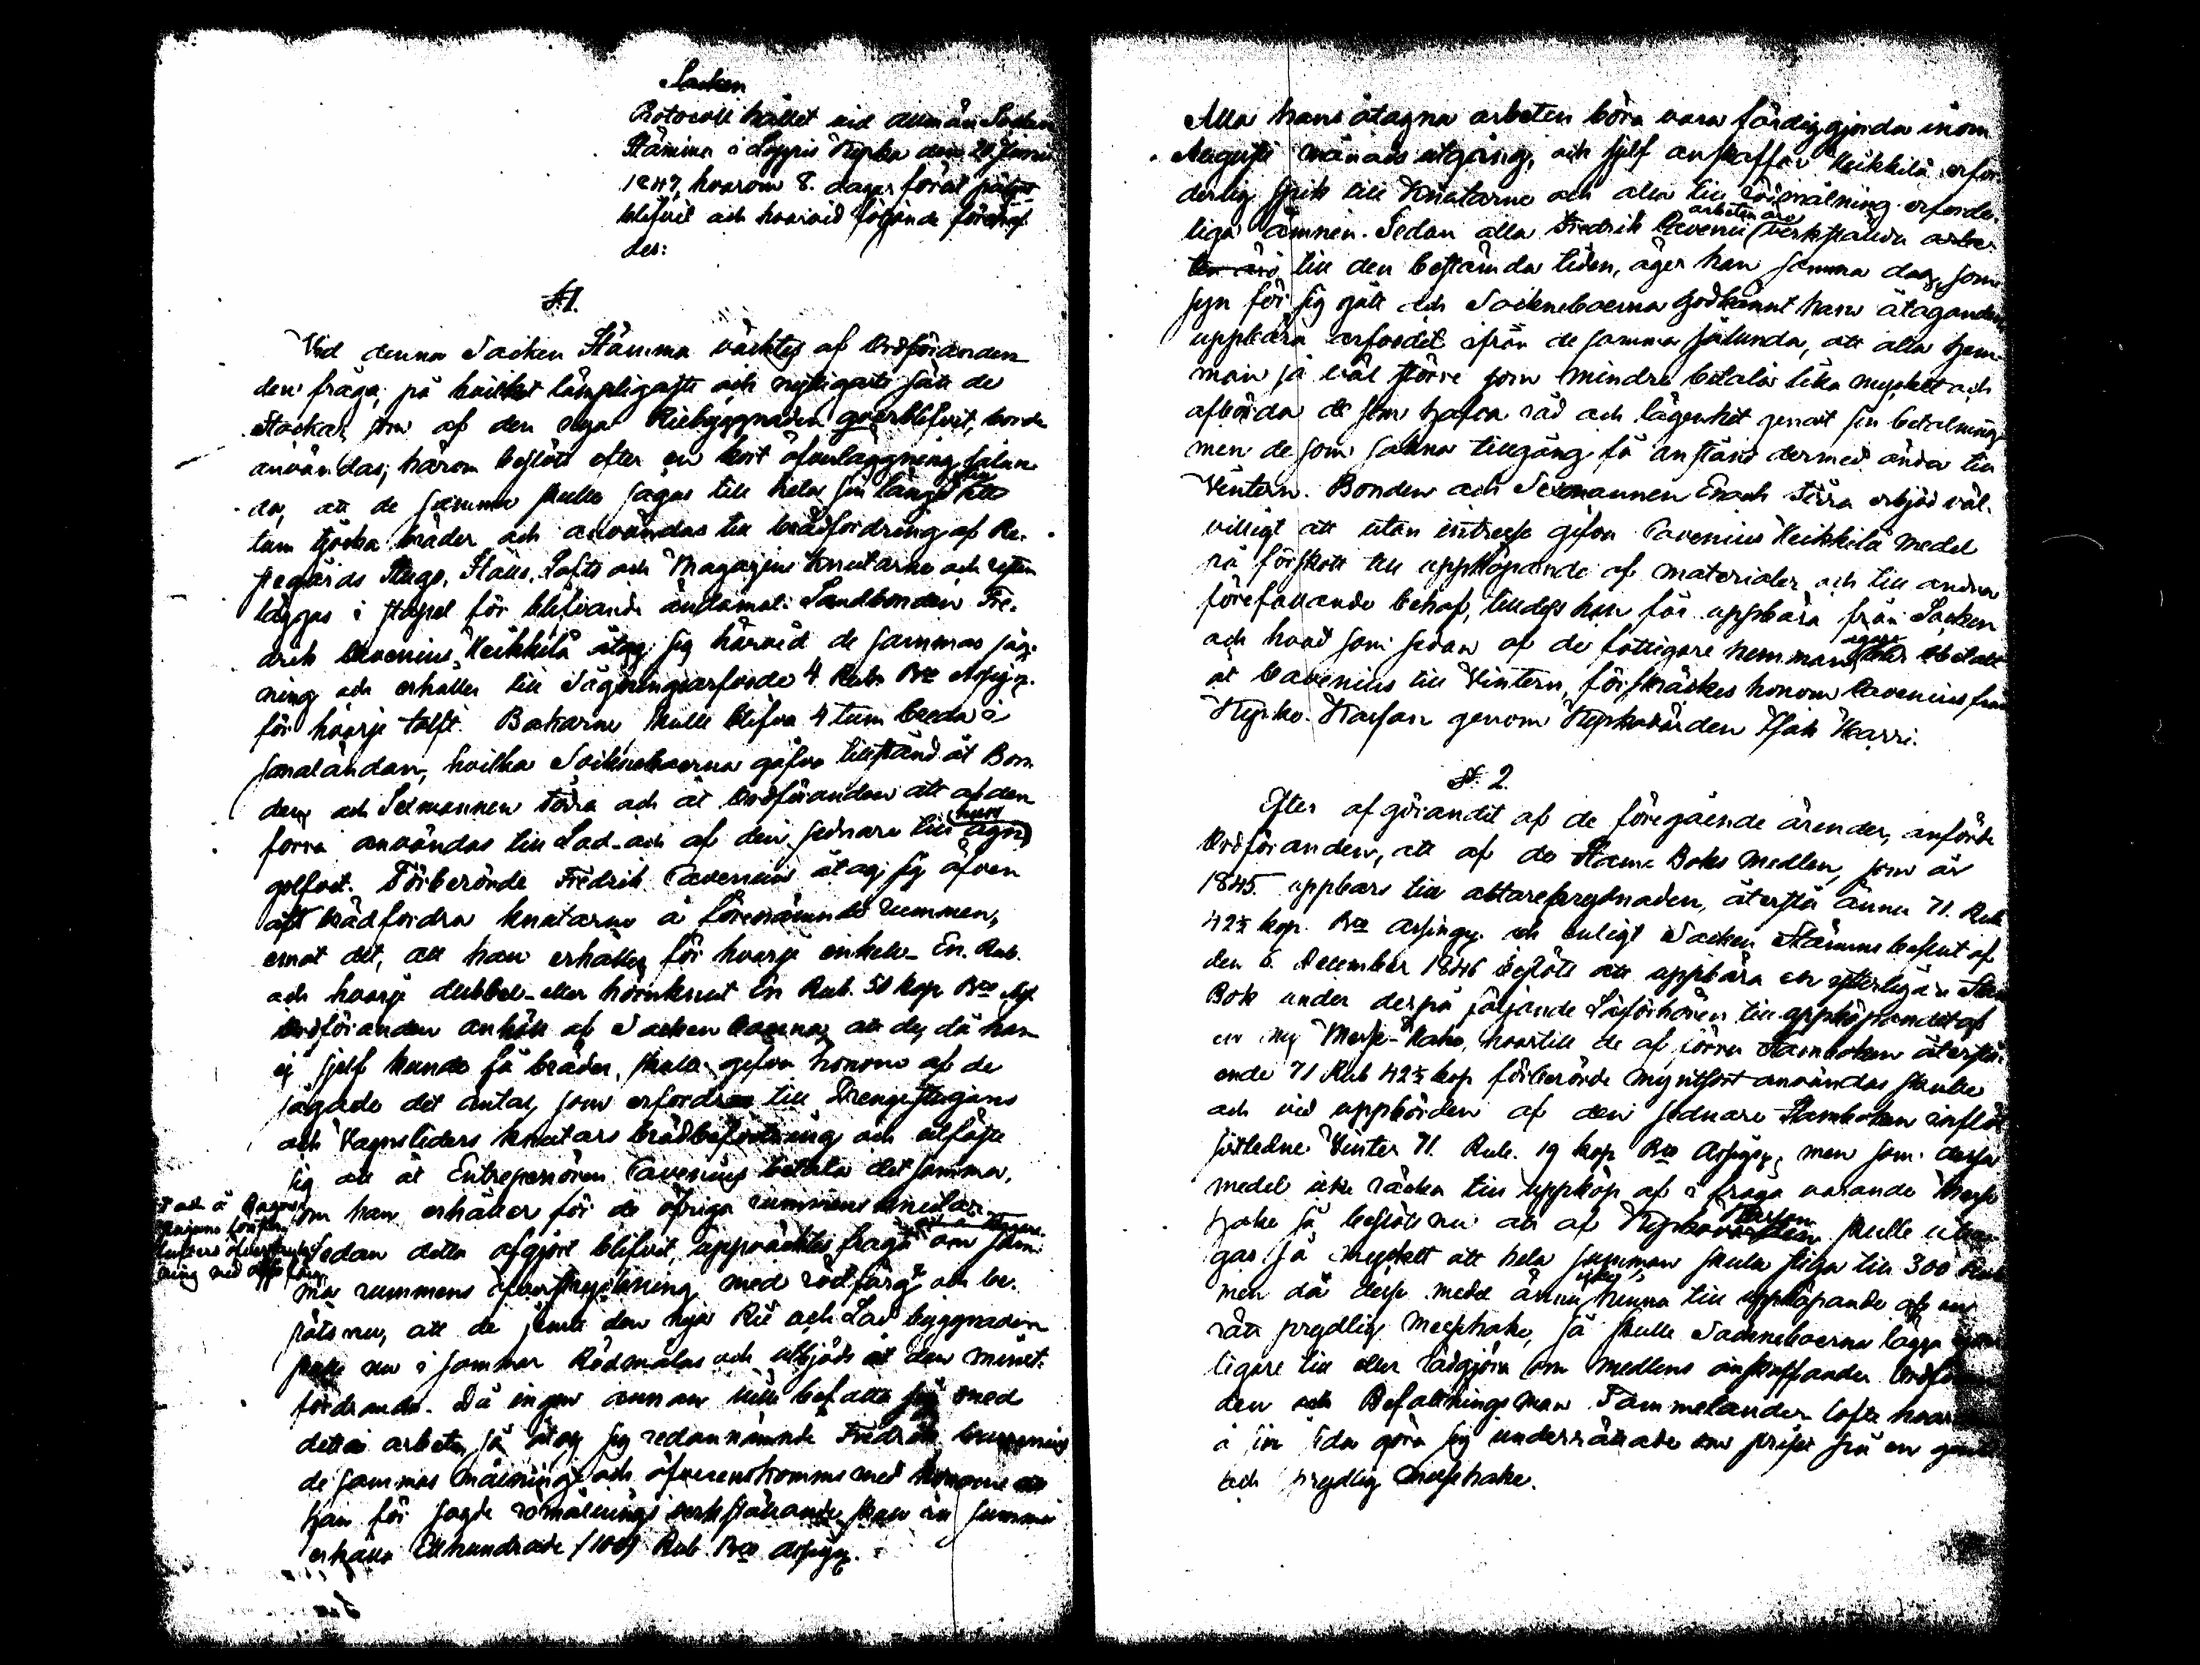 Socken
Protocoll hållet vid allmän Socken
Stämma i Loppis Kyrka den 20 Junii
1847, hvarom 8. dagar förut pålyst
blifvit och hvarvid följande föredrof
des:
§.1.
Vid denna Socken Stämma väcktes af Ordföranden
den fråga, på hvilket lämpligaste och nyttigaste sätt de
Stockar som af den nya Riebyggnaden qvarblifvit, borde
användas; härom beslöts efter en kort öfverläggning sålun-
da, att de samma skulle sågas till hela sin längd
tum tjocka bräder och användas till brädfordring af Re-
jegårds Stugo, Stalls, Lofts och Magazins knutarne och resten
läggas i stapel för blifvande ändamål. Landbonden Fre-
drik Cavenius Heikkilä åtog sig härvid de sammas såg-
ning och erhåller till Sågningsarfvode 4 Rub. Bco Assign.
för hvarje tolft. Bakarne skulle blifva 4 tum breda i
smaländan, hvilka Sockneboerna gåfvo tillstånd åt Bon-
den och Sexmannen Törrä och åt Ordföranden att af den
förra användas till Lad- och af den sednare till
golfvet. Förberörde Fredrik Cavenius åtog sig äfven
att brädfordra knutarne å förenämnde rummen,
emot det, att han erhåller för hvarje enkel- En Rub.
och hvarje dubbel- eller hörnknut En Rub. 50 kop Bco Ass.
Ordföranden anhöll af Sockenboerna, att de, då han
ej sjelf kunde få bräder, skulle gifva honom af de
sågade det antal, som erfordras till Drengstugans
och Vagnsliders knutars brädbefordring och utfäste
sig att åt Entreprenören Cavenius betala det samma,
som han erhåller för de öfriga rummens knutar.
Sedan detta afgjort blifvit, uppväcktes fråga om sam-
ma rummens öfverstrykning med rödfärg och be-
slöts nu, att de jemte den nya Rie och Lad byggnaden
skulle nu i sommar Rödmålas och utbjöds åt den minst-
fordrande. Då ingen annan ville befatta sig med
detta arbete, så åtog sig redannämnde Fredrik
de sammas målning och öfverenskomms med honom att
han för sagde rödmålnings verkställande skall en summa
erhålla Etthundrade /100/ Rub. Bco Assign.
Alla hans åtagna arbeten böra vara färdiggjorda inom
Augusti månads utgång, och sjelf anskaffar Heikkilä erfor-
derlig spik till knutarne och alla till rödmålning erforder-
liga ämnen. Sedan alla Fredrik Cavenii arbeten äro verkstälda arbe-
ten äro till den bestämda tiden, äger han samma dag, som
syn för sig gått och Socknneboerna godkännt hans åtaganden
uppbära arfvodet ifrån de samma sålunda, att alla hem-
man så väl större som mindre betalar lika mycket och
afbörda de som hafva råd och lägenhet genast sin betalning
men de som sakna tillgång få anstånd dermed ända till
Vintern. Bonden och Sexmannen Enoch Törrä erbjöd väl-
villigt att utan intresse gifva Cavenius Heikkilä medel
på förskott till uppköpande af materialer och till andra
förefallande behof, tilldess han får uppbära från Socken
och hvad som sedan af de fattigare hemman
åt Cavenius till Vintern, försträckes honom Cavenius från
Kyrko-Kassan genom Kyrkovärden Isak Harri.
§. 2.
Efter afgörandet af de föregående ärender, anförde
Ordföranden, att af de Stam Boks Medlen, som år
1845 uppbars till altareprydnaden, återstå ännu 71. Rub
42½ kop. Bco assign. och enligt Socken Stämms beslut af
den 6. December 1846 beslöts att uppbära en ytterligare Stam
Bok under derpå följande Läsförhören till uppköpandet af
en ny Messe-Hake, hvartill de af förra Stamboken återstå-
ende 71 Rub 42½ kop förberörde myntsort användas skulle
och vid uppbörden af den sednare Stamboken inflöt
sistledne Vinter 71. Rub. 19 kop Bco Assign; men som dessa
medel icke räcka till uppköp af i fråga varande Messe
hake så beslöts nu att af Kyrko Kassan skulle utta-
gas så mycket att hela summan skulle stiga till 300 Rub
men då desse medel ännu icke hinna till uppköpande af en
rätt prydlig Messhake, så skulle Socknneboerna lägga
ligare till eller rådgöra om medlens anskaffande. Ordföran-
den och Befallningsman Tammelander lofte hvar
å sin sida göra sig underrättade om priset på en
och prydlig messhake.